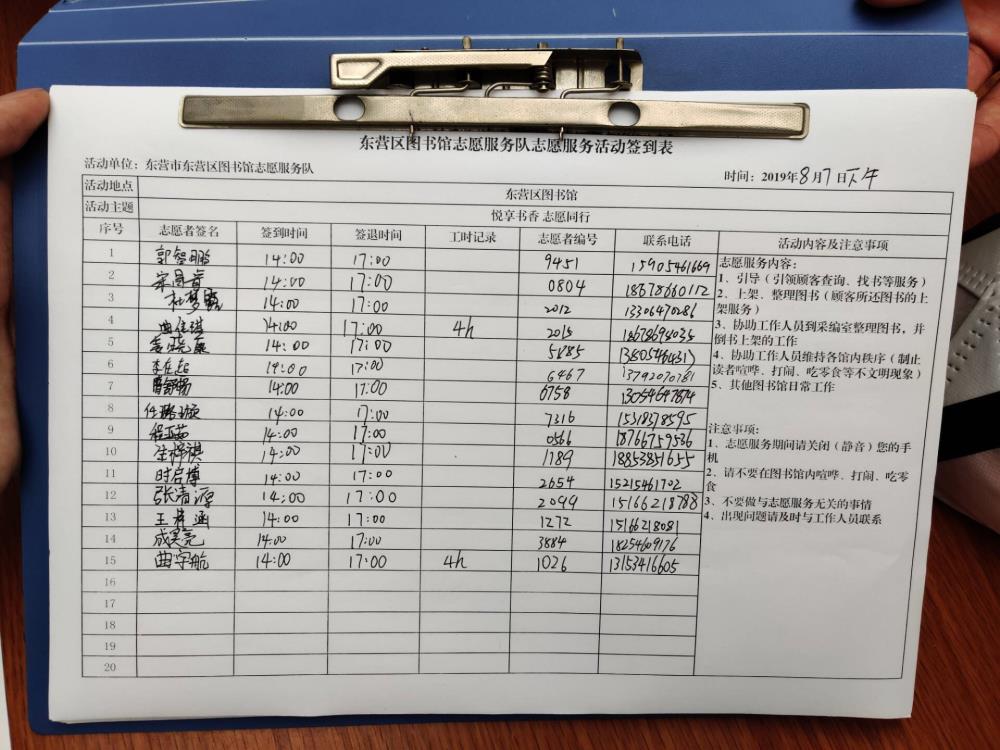 东营区图书馆志愿服务队志愿服务活动签到表
活动单位：东营市东营区图书馆志愿服务队
时间：2019年8月7日下午
活动地点 东营区图书馆
活动主题 悦享书香 志愿同行
序号 志愿者签名 签到时间 签退时间 工时记录 志愿者编号 联系电话 活动内容及注意事项
1 郭智鹏 14:00 17:00 9451 15905461669
2 14:00 17:00 0804 18678660112
3 14:00 17:00 2012 13306470286
4 曲佳琪 14:00 17:00 4h 2015 18678698035
5 14:00 17:00 5885 13805464317
6 14:00 17:00 6467 13792070781
7 14:00 17:00 6758 13054647874
8 14:00 17:00 7316 15318378595
9 14:00 17:00 0566 18766759536
10 14:00 17:00 1789 18853851655
11 时启博 14:00 17:00 2654 15215461702
12 张清源 14:00 17:00 2099 15166218788
13 王梓涵 14:00 17:00 1272 15166218081
14 成昊亮 14:00 17:00 3884 18254609176
15 曲宇航 14:00 17:00 4h 1026 13153416605
16
17
18
19
20
志愿服务内容：
1、引导（引领顾客查询、找书等服务）
2、上架、整理图书（顾客所还图书的上
架服务）
3、协助工作人员到采编室整理图书，并
倒书上架的工作
4、协助工作人员维持各馆内秩序（制止
读者喧哗、打闹、吃零食等不文明现象）
5、其他图书馆日常工作
注意事项：
1、志愿服务期间请关闭（静音）您的手
机
2、请不要在图书馆内喧哗、打闹、吃零
食
3、不要做与志愿服务无关的事情
4、出现问题请及时与工作人员联系